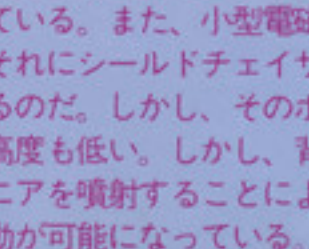 ている。また、小型電磁
それにシールドチェイサ
るのだ。しかし、そのホ
高度も低い。しかし、背
ニアを噴射することによ
動が可能になっている。